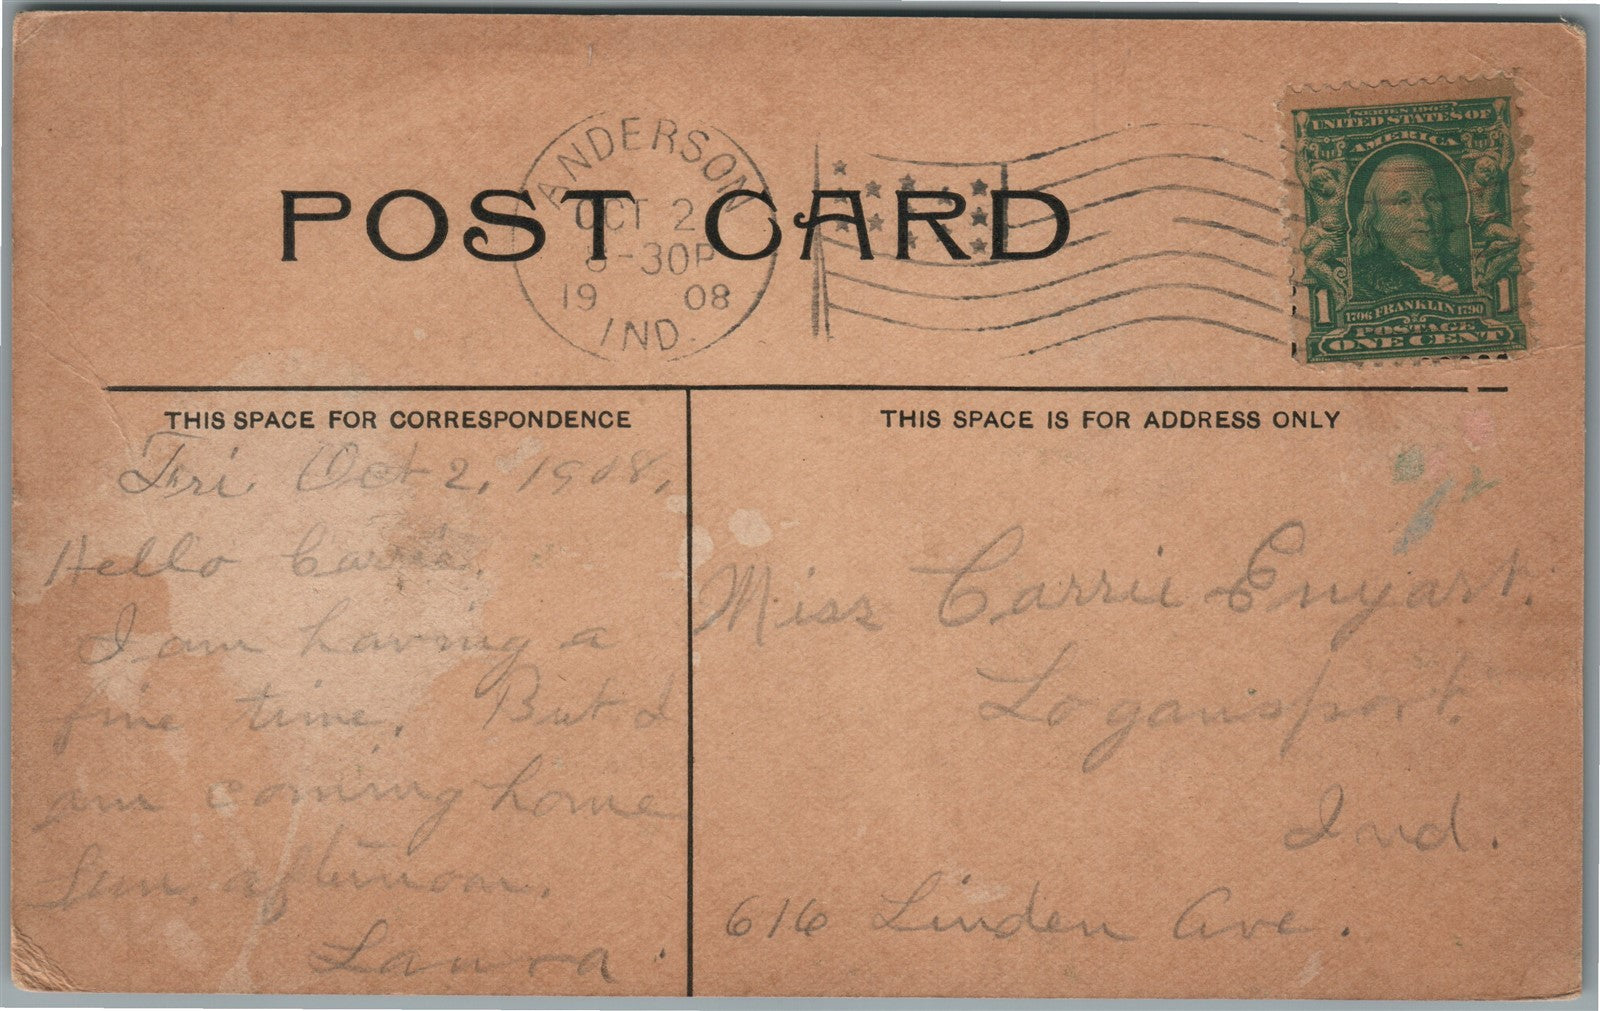 POST CARD
ANDERSON
OCT 2
8-30P
19 08
IND.
SERIES 1902
UNITED STATES OF
AMERICA
1 1
1706 FRANKLIN 1790
POSTAGE
ONE CENT
THIS SPACE FOR CORRESPONDENCE
Fri. Oct 2, 1908,
Hello Carrie,
I am having a
fine time. But I
am coming home
Sun. afternoon.
Laura.
THIS SPACE IS FOR ADDRESS ONLY
Miss Carrie Enyart.
Logansport.
Ind.
616 Linden Ave.